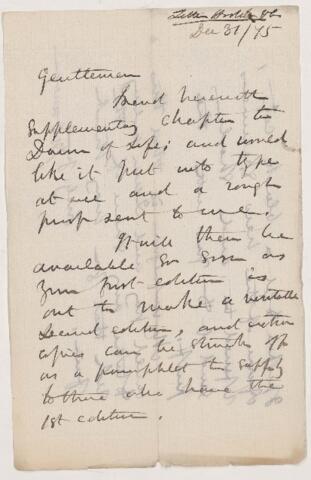 Letter Book
Dec 31/75
Gentlemen
Send herewith
Supplementary chapter to
Dawn of Life; and would
like it put into type
at use and a rough
proof sent to me.
It will then be
available so soon as
your first edition is
out to make a veritable
second edition, and extra
copies can be struck off
as a pamphlet to supply
to those who have the
1st edition.